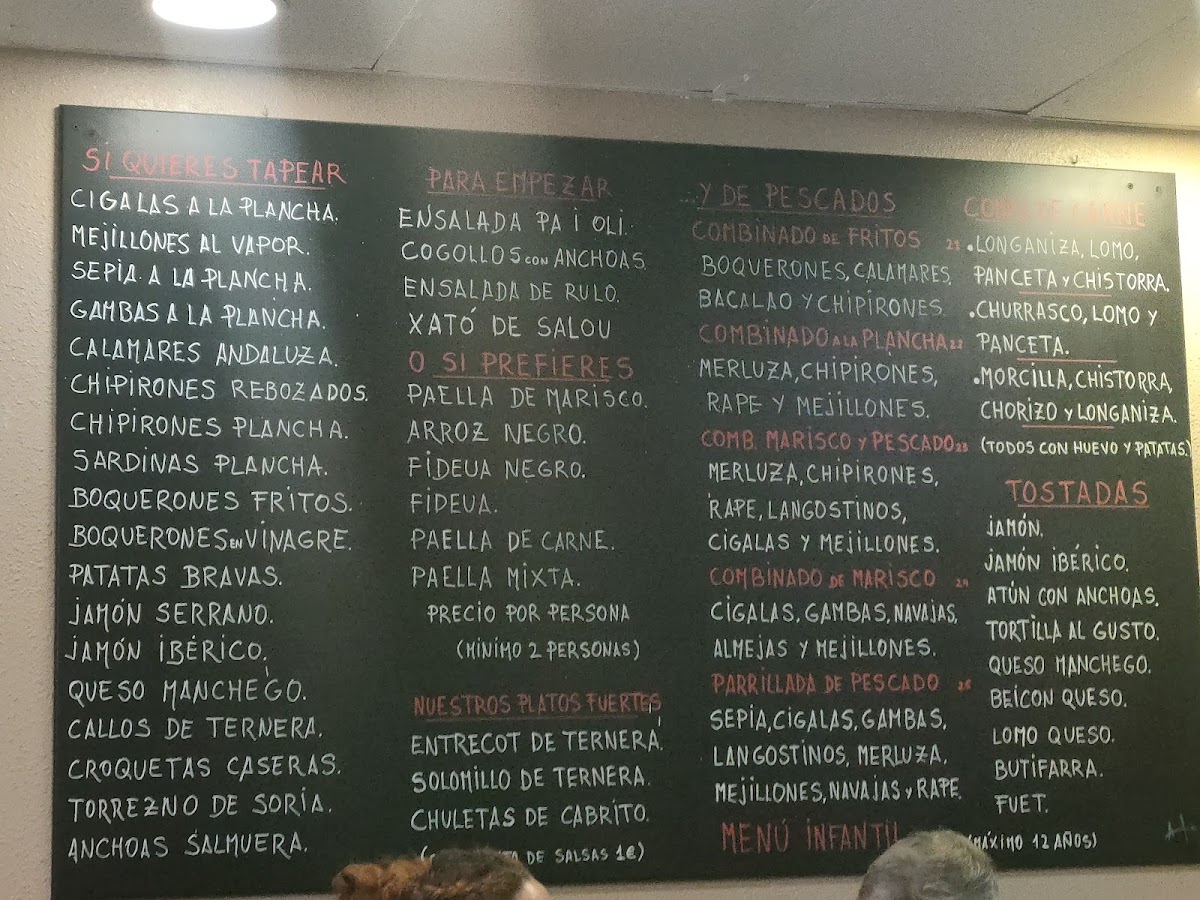 SI QUIERES TAPEAR
CIGALAS A LA PLANCHA.
MEJILLONES AL VAPOR.
SEPIA A LA PLANCHA.
GAMBAS A LA PLANCHA.
CALAMARES ANDALUZA.
CHIPIRONES REBOZADOS.
CHIPIRONES PLANCHA.
SARDINAS PLANCHA.
BOQUERONES FRITOS.
BOQUERONES EN VINAGRE.
PATATAS BRAVAS.
JAMÓN SERRANO.
JAMÓN IBÉRICO.
QUESO MANCHEGO.
CALLOS DE TERNERA.
CROQUETAS CASERAS.
TORREZNO DE SORIA.
ANCHOAS SALMUERA.
PARA EMPEZAR
ENSALADA PA I OLI.
COGOLLOS CON ANCHOAS.
ENSALADA DE RULO.
XATÓ DE SALOU
O SI PREFIERES
PAELLA DE MARISCO.
ARROZ NEGRO.
FIDEUA NEGRO.
FIDEUA.
PAELLA DE CARNE.
PAELLA MIXTA.
PRECIO POR PERSONA
(MINIMO 2 PERSONAS)
NUESTROS PLATOS FUERTES
ENTRECOT DE TERNERA.
SOLOMILLO DE TERNERA.
CHULETAS DE CABRITO.
DE SALSAS 1€)
...Y DE PESCADOS
COMBINADO DE FRITOS
BOQUERONES, CALAMARES,
BACALAO Y CHIPIRONES.
COMBINADO A LA PLANCHA
MERLUZA, CHIPIRONES,
RAPE Y MEJILLONES.
COMB. MARISCO Y PESCADO
MERLUZA, CHIPIRONES,
RAPE, LANGOSTINOS,
CIGALAS Y MEJILLONES.
COMBINADO DE MARISCO
CIGALAS, GAMBAS, NAVAJAS,
ALMEJAS Y MEJILLONES.
PARRILLADA DE PESCADO
SEPIA, CIGALAS, GAMBAS,
LANGOSTINOS, MERLUZA,
MEJILLONES, NAVAJAS Y RAPE.
MENÚ INFANTIL (MÁXIMO 12 AÑOS)
•LONGANIZA, LOMO,
PANCETA Y CHISTORRA.
•CHURRASCO, LOMO Y
PANCETA.
•MORCILLA, CHISTORRA,
CHORIZO Y LONGANIZA.
(TODOS CON HUEVO Y PATATAS.)
TOSTADAS
JAMÓN.
JAMÓN IBÉRICO.
ATÚN CON ANCHOAS.
TORTILLA AL GUSTO.
QUESO MANCHEGO.
BEICON QUESO.
LOMO QUESO.
BUTIFARRA.
FUET.